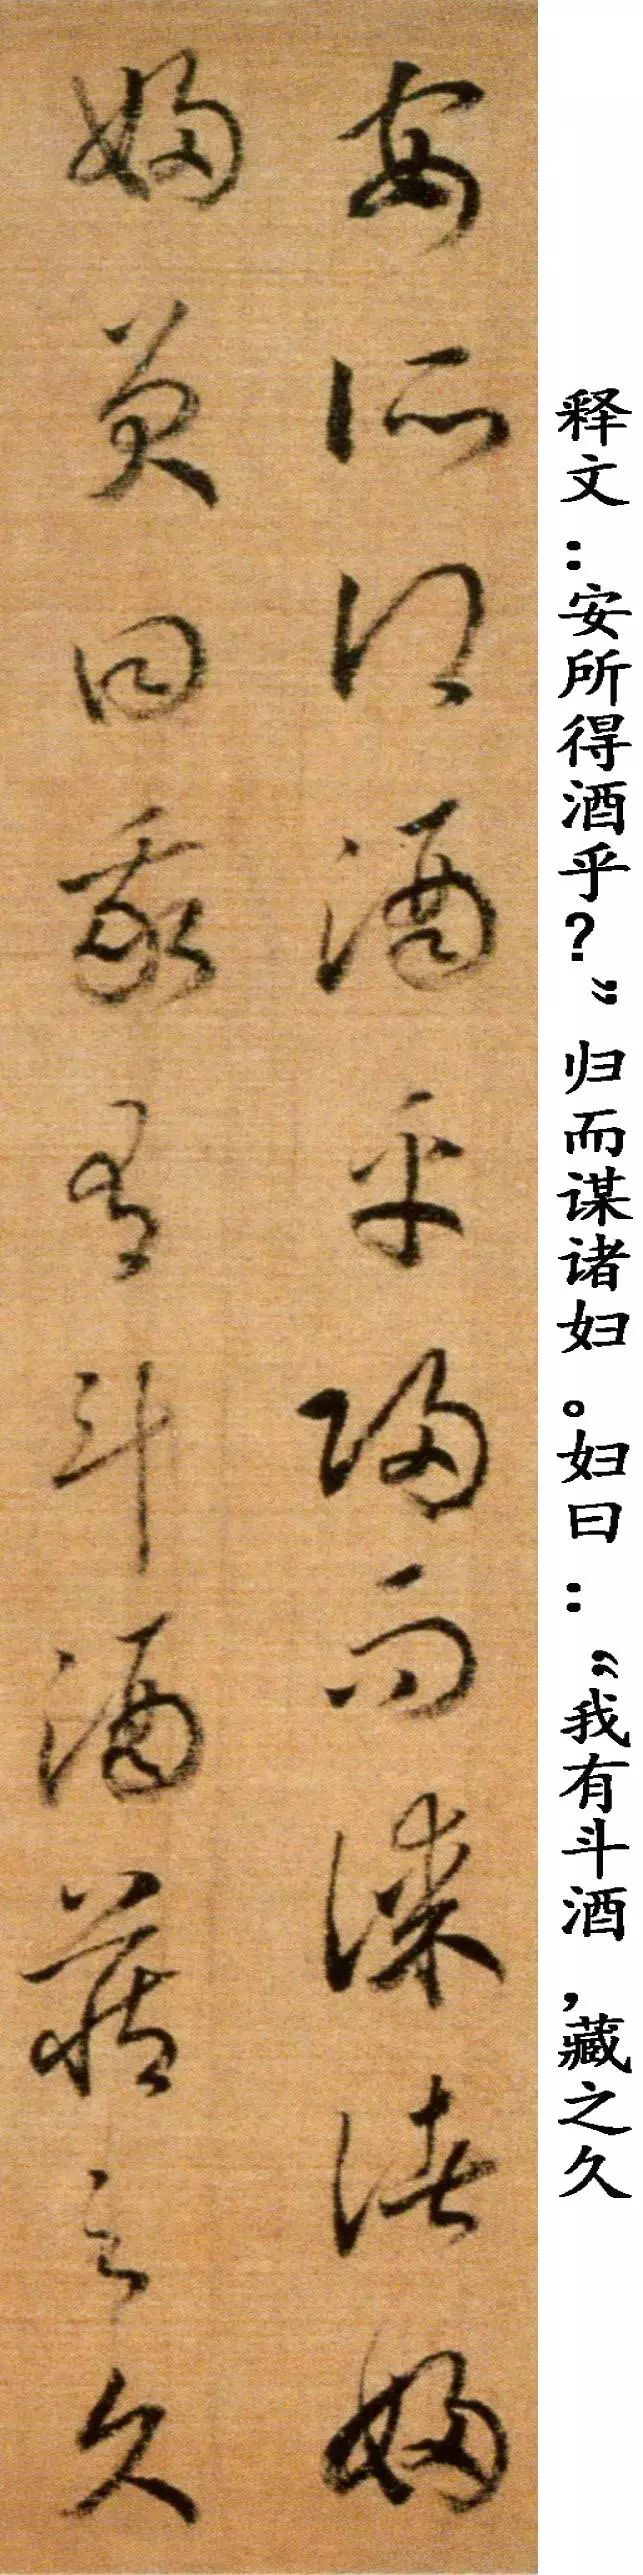 释文：安所得酒乎？”归而谋诸妇。妇曰：“我有斗酒，藏之久
安所得酒乎歸而謀諸婦
婦曰我有斗酒藏之久